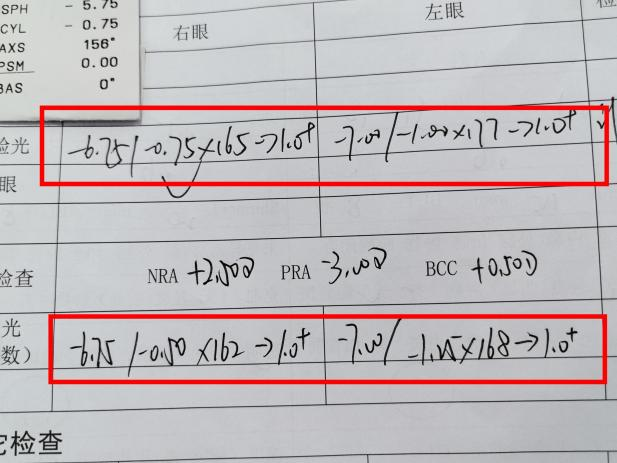 SPH - 5.75
CYL - 0.75
AXS 156°
PSM 0.00
BAS 0°
右眼 左眼
验光 -6.75/-0.75×165→1.0⁺ -7.00/-1.00×177→1.0⁺
眼
检查 NRA +2.50D PRA -3.00D BCC +0.50D
光
数) -6.75/-0.50×162→1.0⁺ -7.00/-1.25×168→1.0⁺
检查